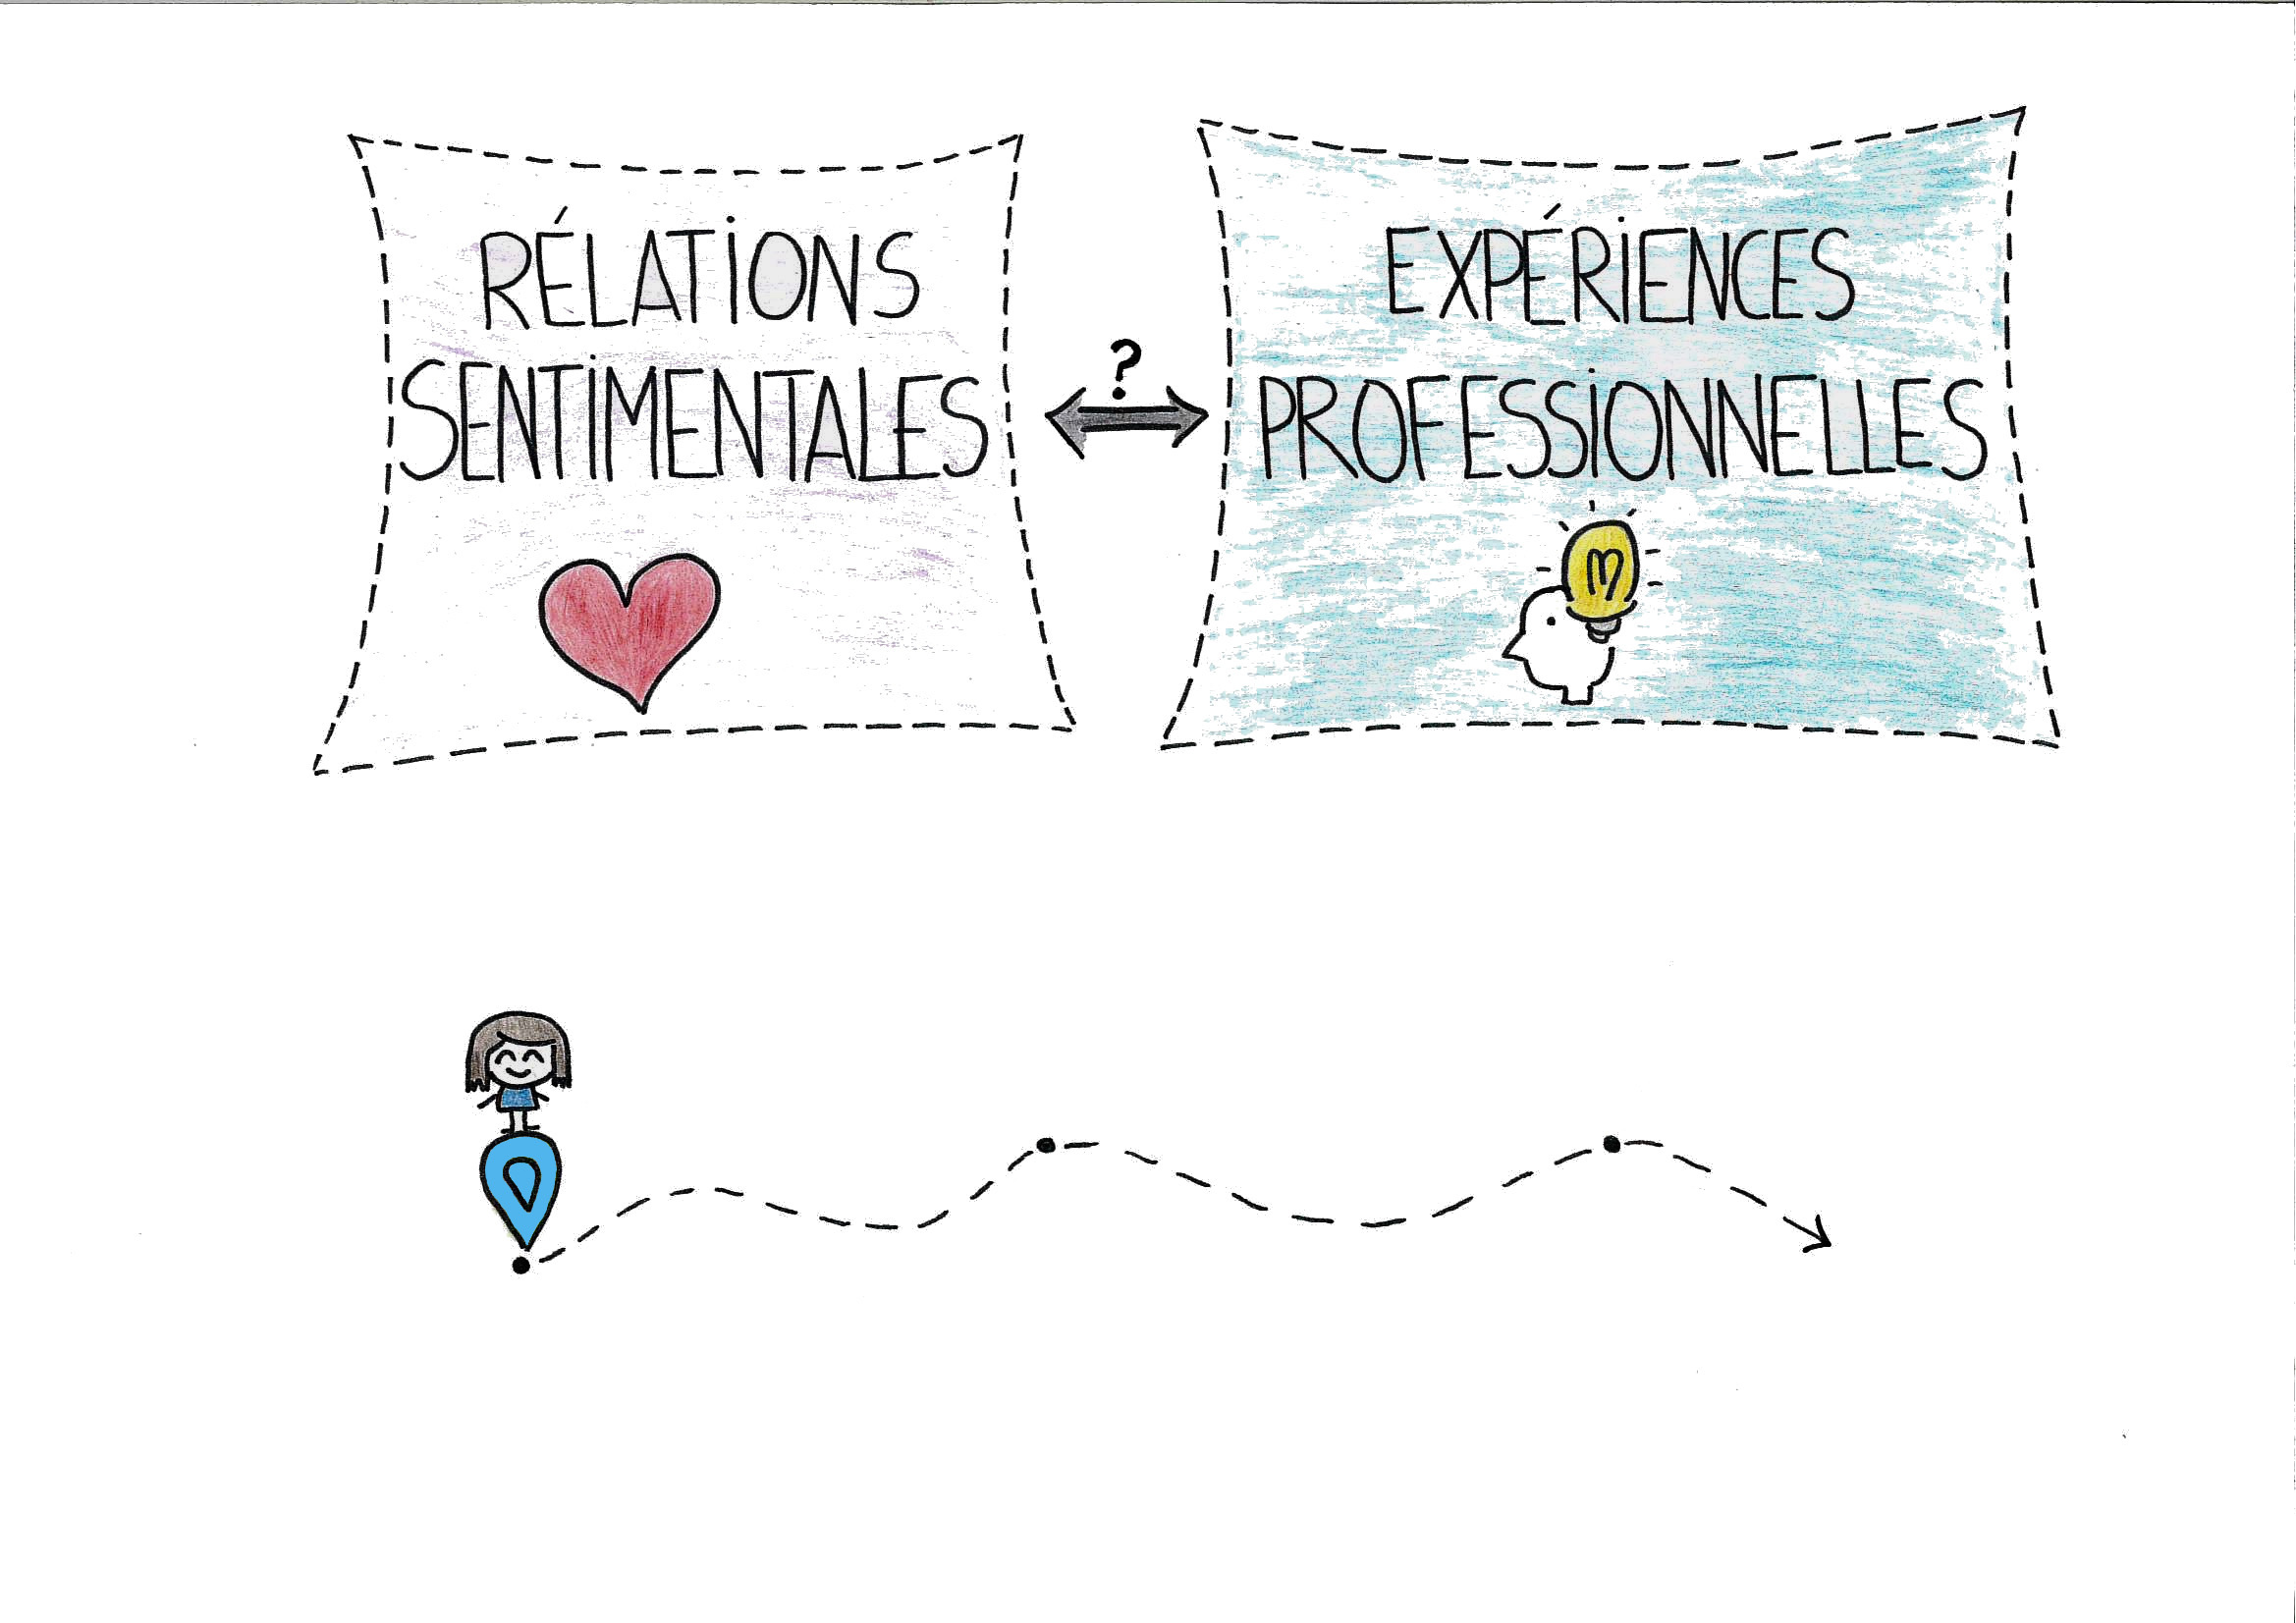 RÉLATIONS
SENTIMENTALES
?
EXPÉRIENCES
PROFESSIONNELLES